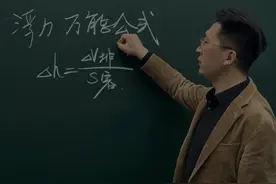 浮力万能公式
Δh=ΔV排/S容